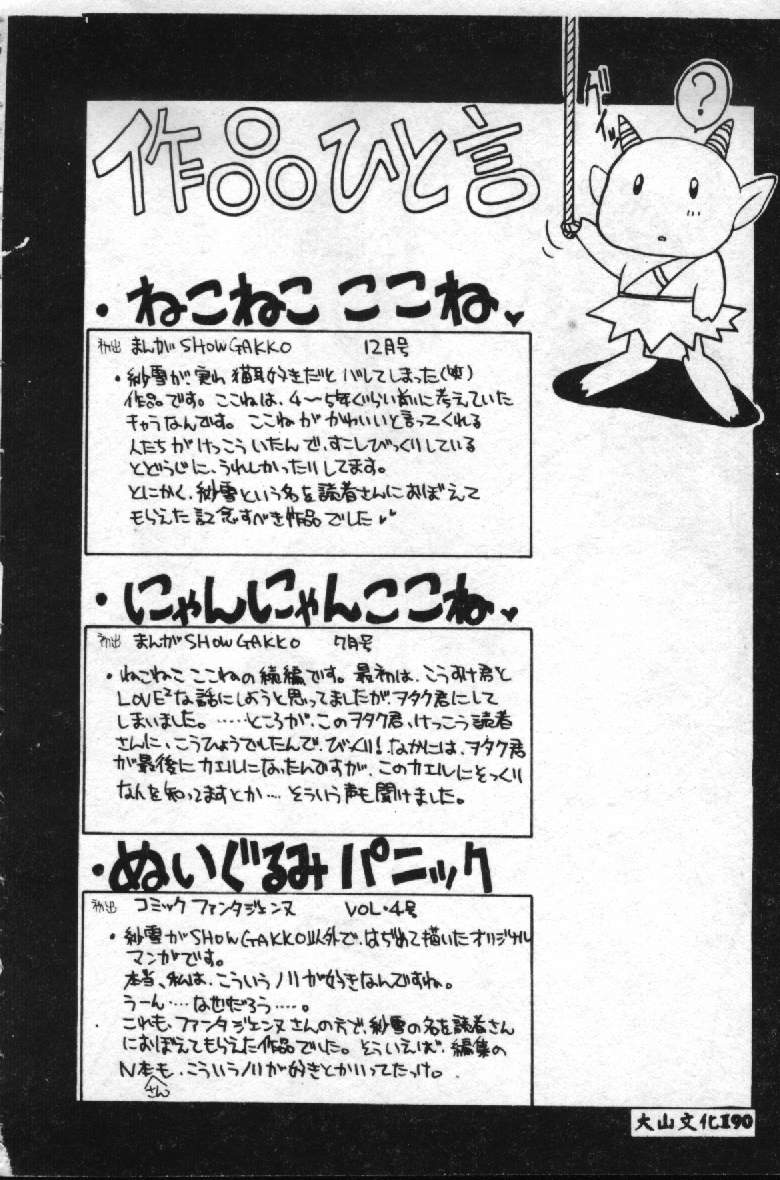 作品ひと言
グイッ
?
・ねこねこ ここね♥
初出 まんがSHOW GAKKO 12月号
・紗雪が、実は猫耳好きだとバレてしまった(笑)
作品です。ここねは、4〜5年ぐらい前に考えていた
キャラなんです。ここねがかわいいと言ってくれる
人たちがけっこういたんで、すこしびっくりしている
とどうじに、うれしかったりしてます。
とにかく、紗雪という名を読者さんにおぼえて
もらえた記念すべき作品でした♥♥
・にゃんにゃんここね♥
初出 まんがSHOW GAKKO 7月号
・ねこねこ ここねの続編です。最初は、こうすけ君と
LOVE²な話にしようと思ってましたが、ヲタク君にして
しまいました。……ところが、このヲタク君、けっこう読者
さんに、こうひょうでしたんで、びっくり!なかには、ヲタク君
が最後にカエルになったんですが、このカエルにそっくり
なんを知ってますとか…そういう声も聞けました。
・ぬいぐるみパニック
初出 コミックファンタジェンヌ VOL・4号
・紗雪がSHOW GAKKO以外で、はじめて描いたオリジナル
マンガです。
本当、私は、こういうノリが好きなんですね。
うーん…なぜだろう……。
これも、ファンタジェンヌさんの方で、紗雪の名を読者さん
におぼえてもらえた作品でした。そういえば、編集の
N本さんも、こういうノリが好きとかいってたっけ。
大山文化190